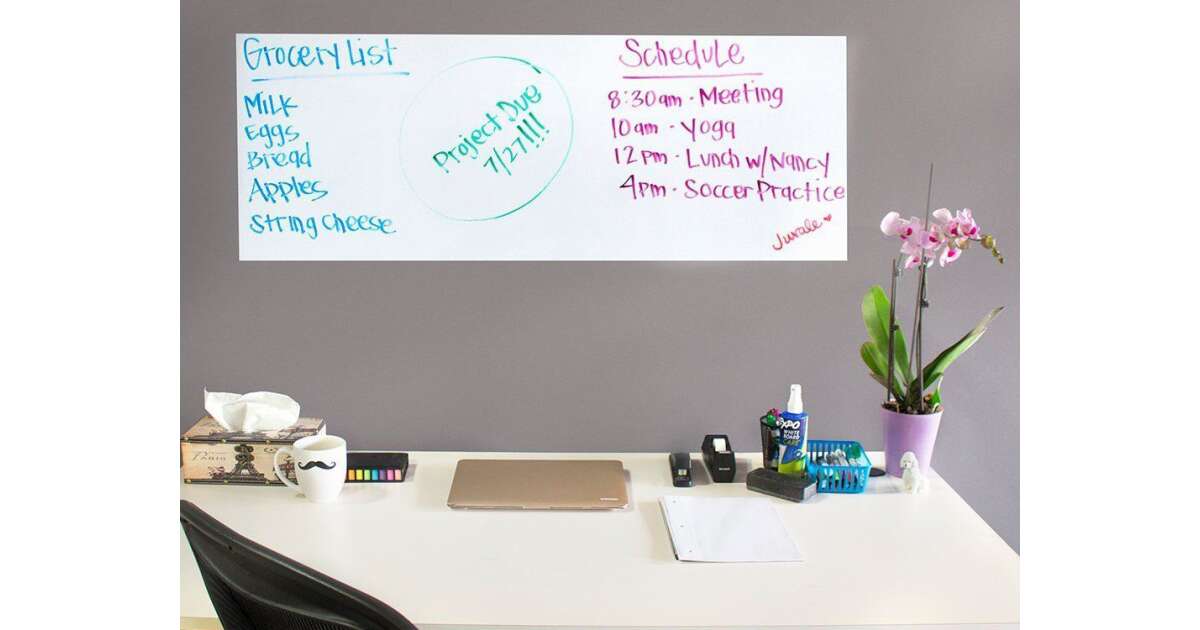 Grocery List
Milk
Eggs
Bread
Apples
String Cheese
Project Due
7/27!!!!
Schedule
8:30am - Meeting
10am - Yoga
12pm - Lunch w/Nancy
4pm - Soccer Practice
Juvale ♥
PARIS
EXPO
WHITE BOARD
CARE